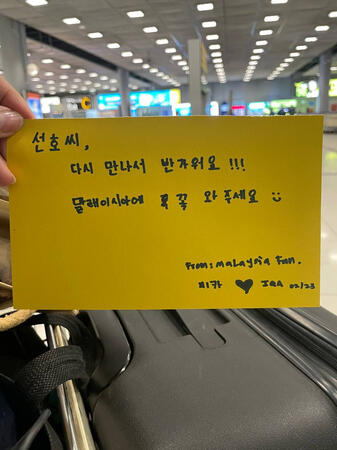 선호씨,
다시 만나서 반가워요 !!!
말레이시아에 꼭 꼭 와 주세요 :)
From: malaysia fan.
피카 ♥ JAA 02/23